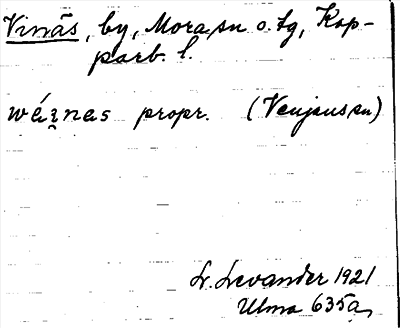 Vinäs, by, Mora sn o. tg, Kop-
parb. l.
wáznas propr. (Venjans sn)
L. Levander 1921
Ulma 635a,